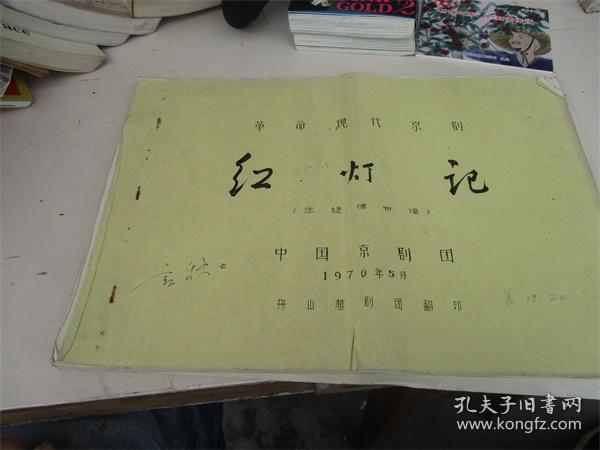 ace
GOLD 2
革命现代京剧
红灯记
(主旋律总谱)
中国京剧团
1970年5月
舟山越剧团翻印
19.20.
孔夫子旧书网
www.kongfz.com